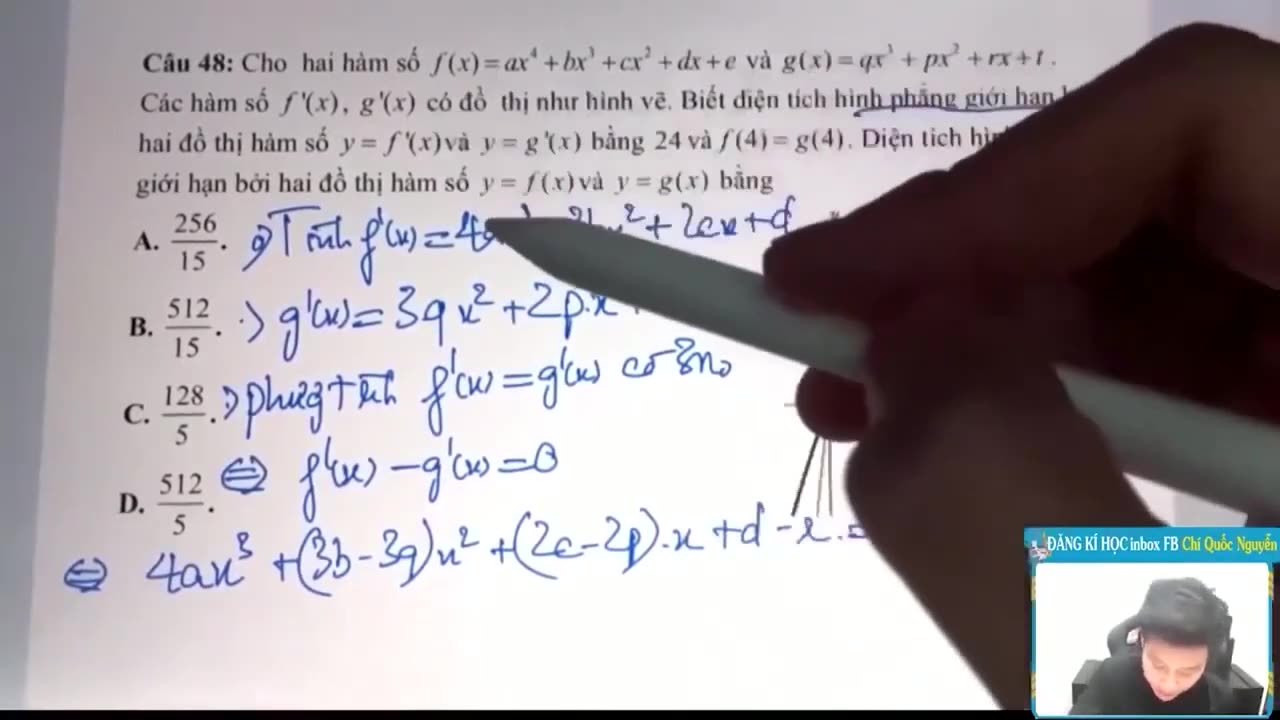 Câu 48: Cho hai hàm số f(x) = ax⁴ + bx³ + cx² + dx + e và g(x) = qx³ + px² + rx + t .
Các hàm số f '(x), g '(x) có đồ thị như hình vẽ. Biết diện tích hình phẳng giới hạn
hai đồ thị hàm số y = f '(x) và y = g '(x) bằng 24 và f(4) = g(4). Diện tích
giới hạn bởi hai đồ thị hàm số y = f(x) và y = g(x) bằng
A. 256/15 .
Tính f'(x) = 4a x² + 2cx + d
B. 512/15 .
g'(x) = 3qx² + 2p.x
C. 128/5 .
f'(x) = g'(x) có 3 no
⇔ f'(x) – g'(x) = 0
D. 512/5 .
⇔ 4ax³ + (3b – 3q)x² + (2c – 2p).x + d – r =
ĐĂNG KÍ HỌC inbox FB Chí Quốc Nguyễn